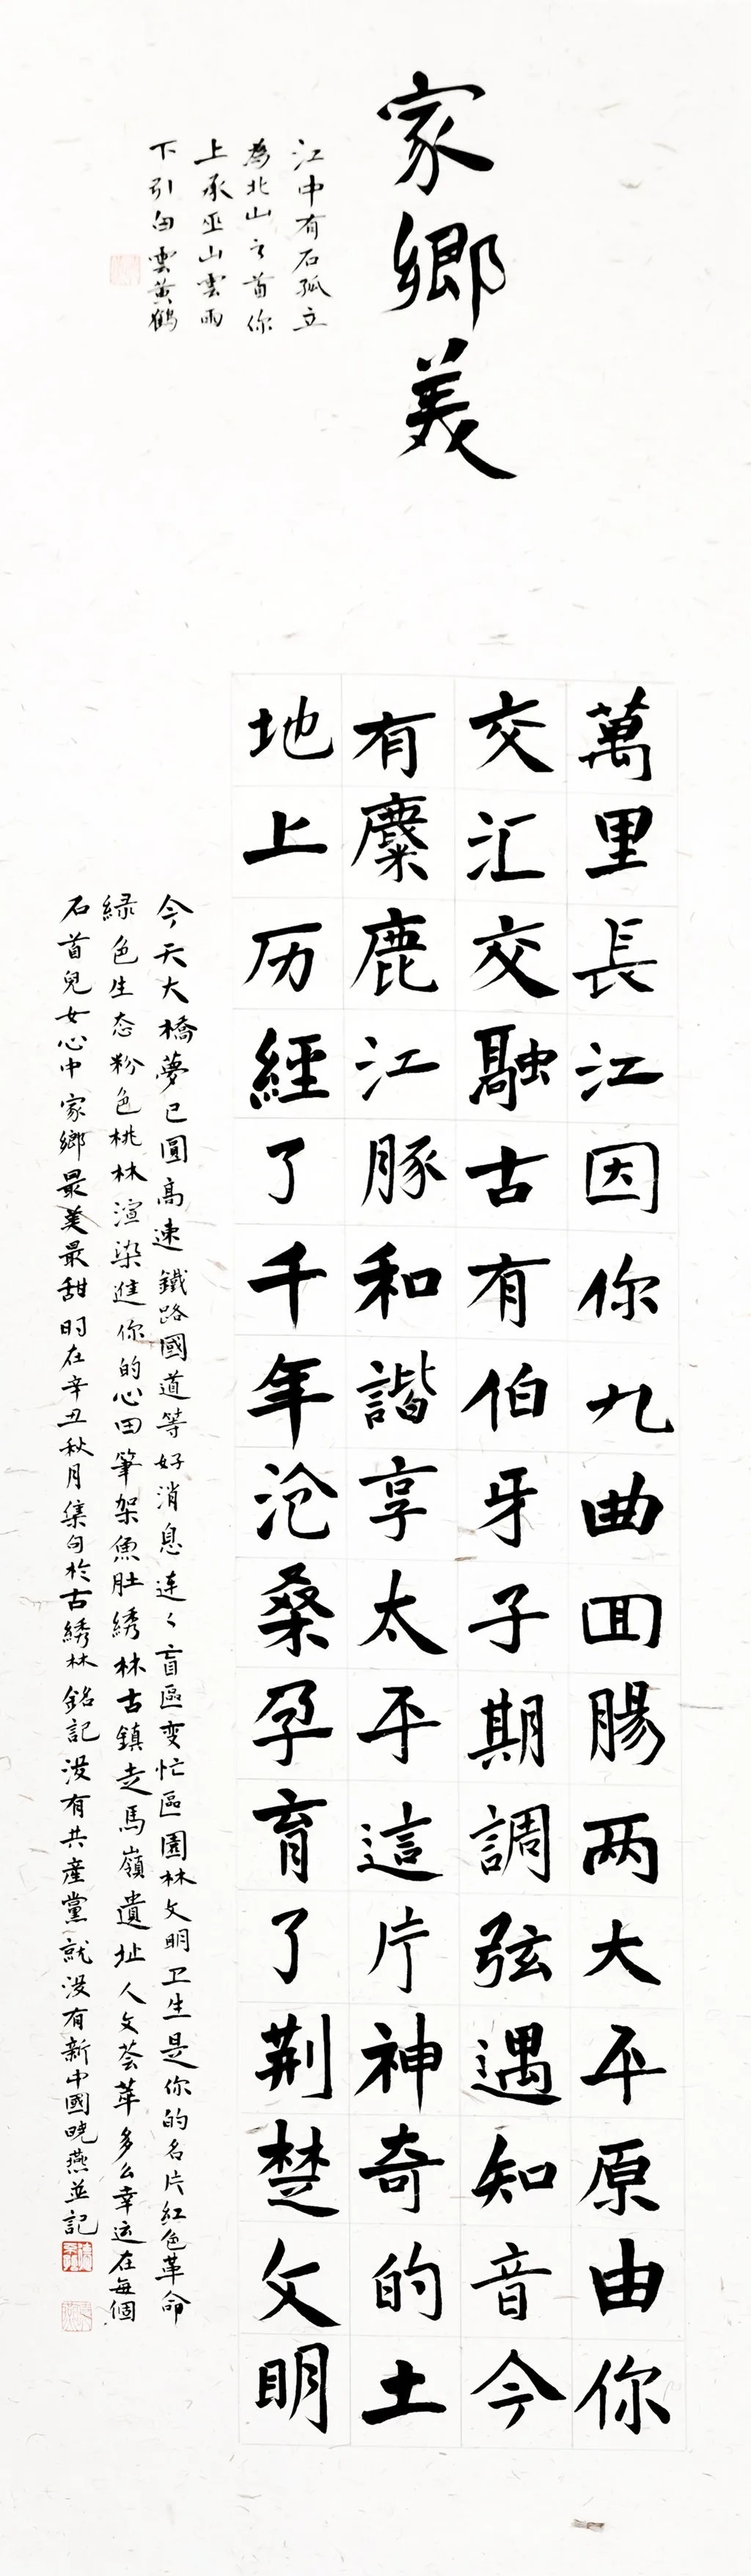 家鄉美
江中有石孤立
為北山之首你
上承巫山雲雨
下引白雲黃鶴
萬里長江因你九曲回腸两大平原由你
交汇交融古有伯牙子期調弦遇知音今
有麋鹿江豚和諧享太平這片神奇的土
地上历經了千年沧桑孕育了荆楚文明
今天大橋夢已圓高速鐵路國道等好消息连々盲區变忙區園林文明卫生是你的名片紅色革命
緑色生态粉色桃林渲染進你的心田筆架魚肚綉林古鎮走馬嶺遺址人文荟萃多么幸运在每個
石首兒女心中家鄉最美最甜时在辛丑秋月集句於古綉林銘記没有共產黨就没有新中國晓燕並記